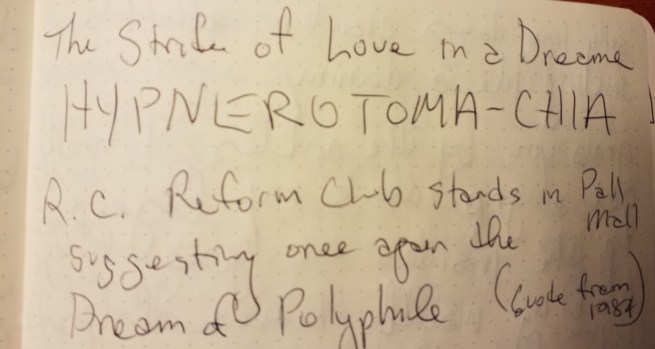 The Strife of Love in a Dreame
HYPNEROTOMA-CHIA
R.C. Reform Club stands in Pall Mall
suggesting once again the
Dream of Polyphile (Quote from 1987)